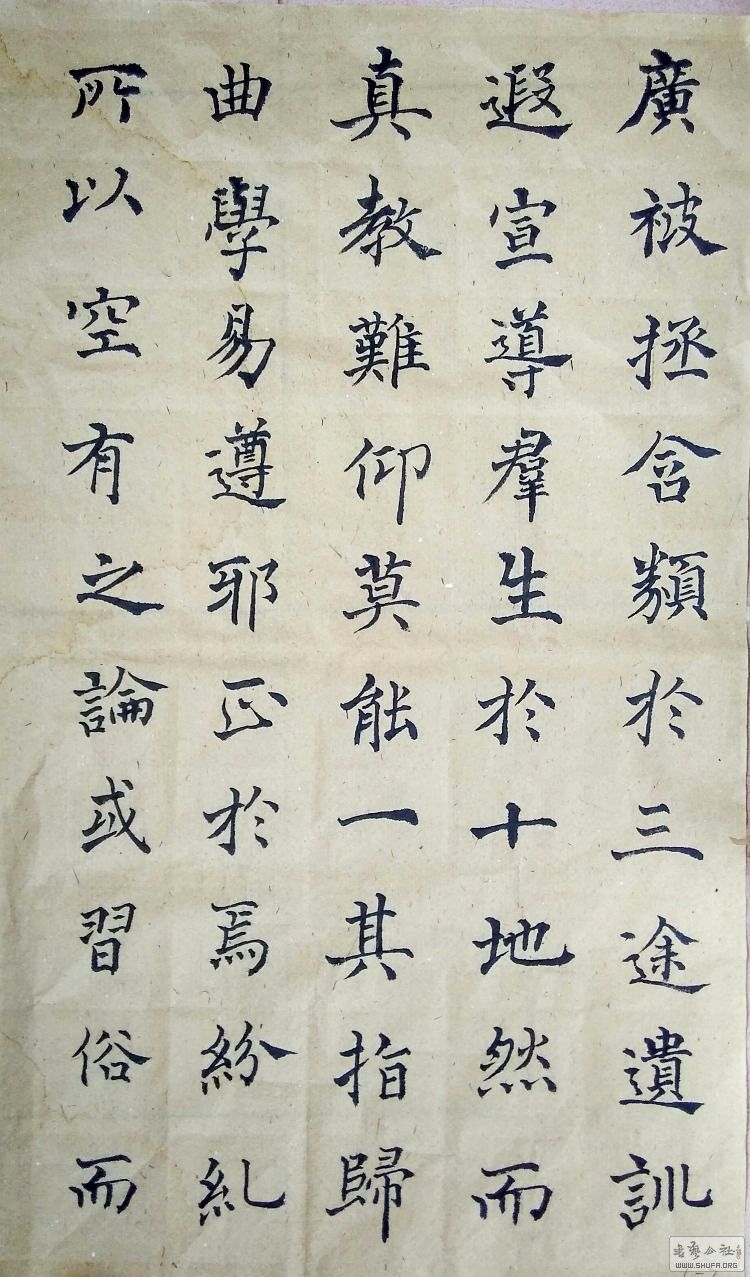 廣被拯含類於三途遺訓
遐宣導羣生於十地然而
真教難仰莫能一其指歸
曲學易遵耶正於焉紛糺
所以空有之論或習俗而
WWW.SHUFA.ORG